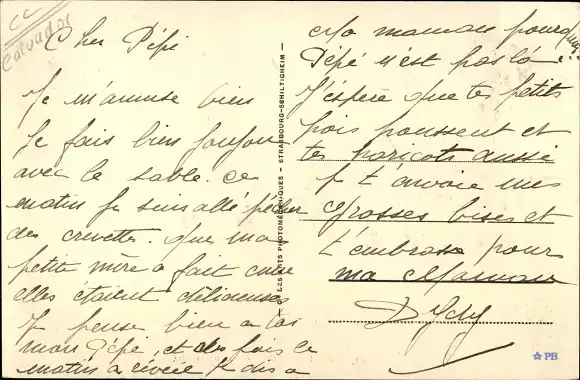 CC
Calvados
Cher Pépé
Je m'amuse bien
Je fais bien joujou
avec le sable. Ce
matin je suis allé pêcher
des crevettes. Que ma
petite mère a fait cuire
elles étaient délicieuses
Je pense bien a toi
mon Pépé, et des fois le
matin a réveil je dis a
LES ARTS PHOTOMÉCANIQUES - STRASBOURG-SCHILTIGHEIM -
Ma maman pourquoi
Pépé n'est pas là ?
J'espère que tes petits
pois poussent et
tes haricots aussi
Je t'envoie mes
Grosses bises et
t'embrasse pour
ma Maman
PB